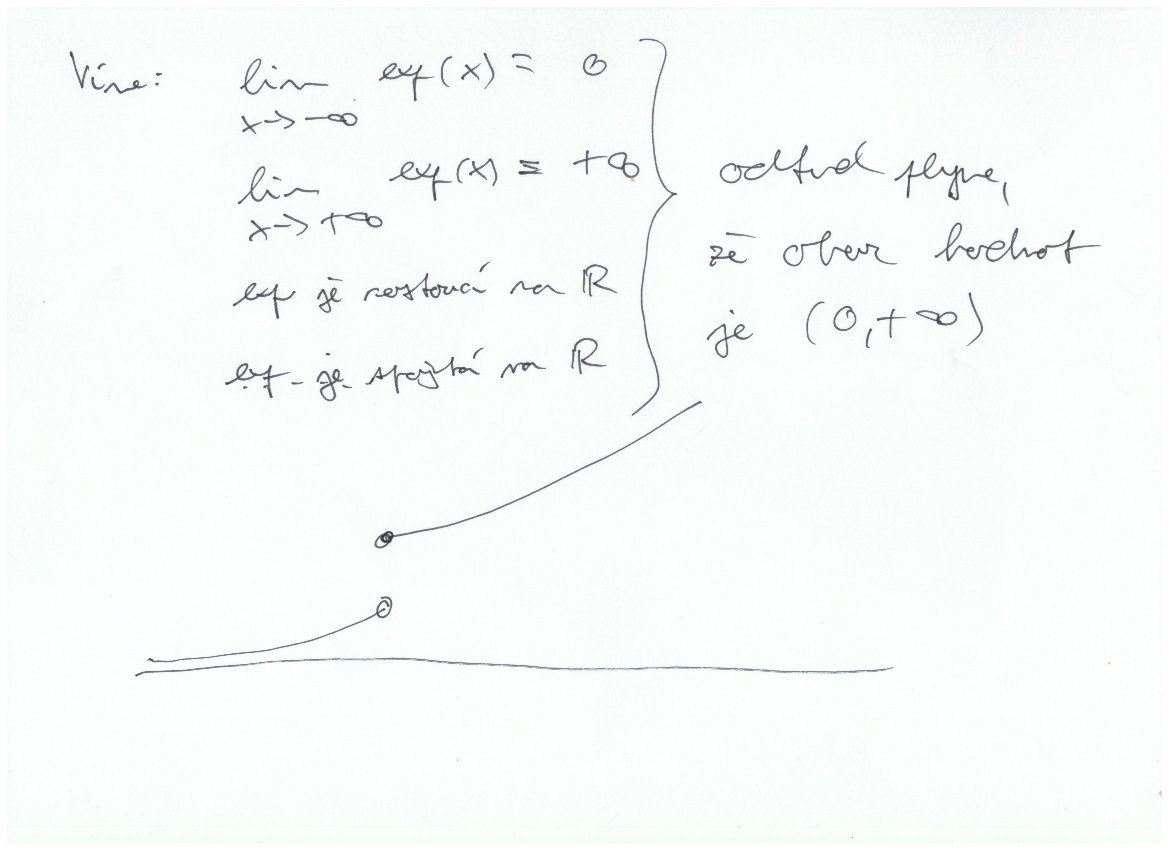 Víme: lim exp(x) = 0
x→-∞
lim exp(x) = +∞
x→+∞
exp je rostoucí na ℝ
exp je spojitá na ℝ
odtud plyne,
že obor hodnot
je (0,+∞)